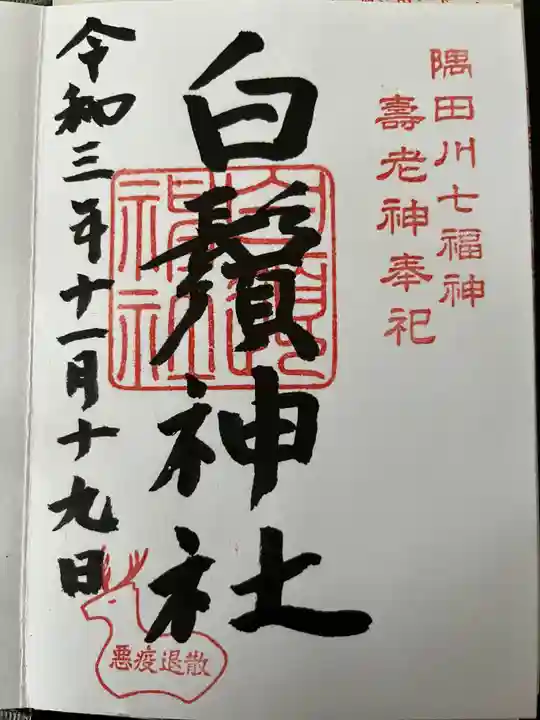 隅田川七福神
壽老神奉祀
白鬚神社
令和三年十一月十九日
悪疫退散